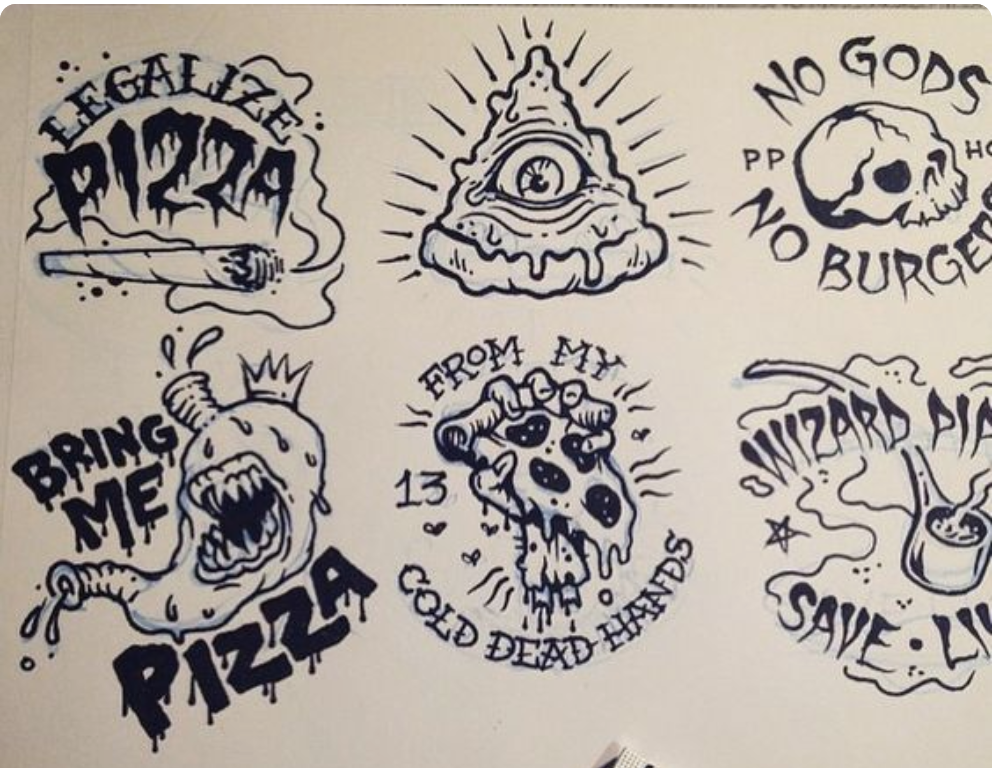 LEGALIZE
PIZZA
NO GODS
PP
NO
BRING
ME
PIZZA
FROM MY
13
COLD DEAD HANDS
WIZARD
SAVE